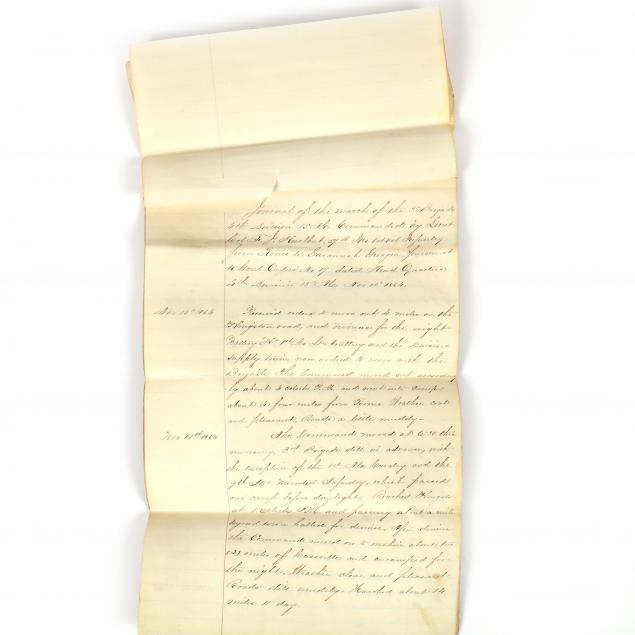 Journal of the march of the 3rd Brigade
4th Division 15 AC Commanded by Lieut
Col F. J. Hurlbut, 57th Ills Vet Vol Infantry
from Rome to Savannah Georgia, furnished
to Genl Orders No 17, dated Head Quarters
4th Division 15 AC Nov 1864.
Nov 10th 1864
Received orders to move out 4 miles on the
Kingston road, and bivouac for the night
Battery H 1st Mo Lt Artillery and the Division
Supply train now ordered to move with the
Brigade. The Command moved out accordingly
by about 4 oclock P.M. and went into Camp
about (4) four miles from Rome. Weather cool
and pleasant, Roads a little muddy.
Nov 11th 1864
The Command moved at 6:30 this
morning, 3rd Brigade still in advance, with
the exception of the 1st Ala Cavalry and the
9th Ills Mounted Infantry, which passed
our camp before daylight. Reached Kingston
at 1 oclock P.M. and passing about a mile
beyond town halted for dinner. After dinner
the Command moved on to within about two
(2) miles of Cassville and encamped for
the night. Weather clear and pleasant.
Roads still muddy. Marched about 14
miles to day.